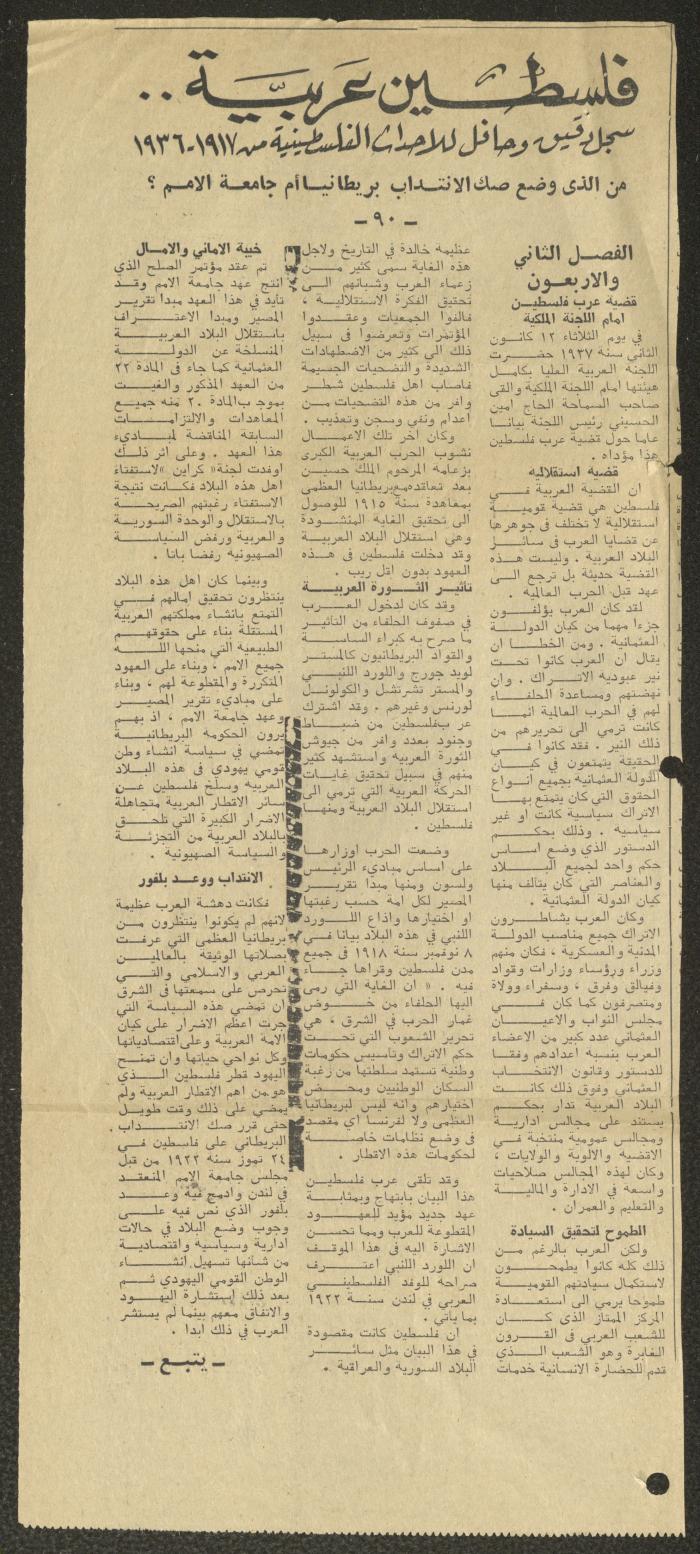 فلسطين عربيّة ..
سجل دقيق وحافل للاحداث الفلسطينية من ١٩١٧-١٩٣٦
من الذى وضع صك الانتداب بريطانيا أم جامعة الامم ؟
- ٩٠ -
الفصل الثاني
والاربعون
قضية عرب فلسطين
امام اللجنة الملكية
في يوم الثلاثاء ١٢ كانون
الثاني سنة ١٩٣٧ حضرت
اللجنة العربية العليا بكامل
هيئتها امام اللجنة الملكية والقى
صاحب السماحة الحاج امين
الحسيني رئيس اللجنة بيانا
عاما حول قضية عرب فلسطين
هذا مؤداه .
قضية استقلاليه
ان القضية العربية في
فلسطين هي قضية قومية
استقلالية لا تختلف في جوهرها
عن قضايا العرب فى سائر
البلاد العربية . وليست هذه
القضية حديثة بل ترجع الى
عهد قبل الحرب العالميه .
لقد كان العرب يؤلفون
جزءا مهما من كيان الدولة
العثمانية . ومن الخطا ان
يقال ان العرب كانوا تحت
نير عبودية الاتراك . وان
نهضتهم ومساعدة الحلفاء
لهم في الحرب العالمية انما
كانت ترمى الى تحريرهم من
ذلك النير . فقد كانوا في
الحقيقة يتمتعون في كيان
الدولة العثمانيه بجميع انواع
الحقوق التي كان يتمتع بها
الاتراك سياسية كانت او غير
سياسيه . وذلك بحكم
الدستور الذي وضع اساس
حكم واحد لجميع البلاد
والعناصر التي كان يتالف منها
كيان الدولة العثمانية .
وكان العرب يشاطرون
الاتراك جميع مناصب الدولة
المدنية والعسكرية ، فكان منهم
وزراء ورؤساء وزارات وقواد
وفيالق وفرق ، وسفراء وولاة
ومتصرفون كما كان في
مجلس النواب والاعيان
العثماني عدد كبير من الاعضاء
العرب بنسبة اعدادهم وفقا
للدستور وقانون الانتخاب
العثماني وفوق ذلك كانت
البلاد العربية تدار بحكم
يستند على مجالس ادارية
ومجالس عمومية منتخبة في
الاقضية والالوية والولايات ،
وكان لهذه المجالس صلاحيات
واسعه في الادارة والمالية
والتعليم والعمران .
الطموح لتحقيق السيادة
ولكن العرب بالرغم من
ذلك كله كانوا يطمحون
لاستكمال سيادتهم القومية
طموحا يرمى الى استعادة
المركز الممتاز الذى كان
للشعب العربى فى القرون
الغابرة وهو الشعب الذي
قدم للحضارة الانسانية خدمات
عظيمه خالدة في التاريخ ولاجل
هذه الغاية سمى كثير من
زعماء العرب وشبانهم الى
تحقيق الفكرة الاستقلالية ،
فالفوا الجمعيات وعقدوا
المؤتمرات وتعرضوا فى سبيل
ذلك الى كثير من الاضطهادات
الشديدة والتضحيات الجسيمة
فاصاب اهل فلسطين شطر
وافر من هذه التضحيات من
اعدام ونفى وسجن وتعذيب .
وكان آخر تلك الاعمال
نشوب الحرب العربية الكبرى
بزعامة المرحوم الملك حسين
بعد تعاقده مع بريطانيا العظمى
بمعاهدة سنة ١٩١٥ للوصول
الى تحقيق الغاية المنشودة
وهي استقلال البلاد العربية
وقد دخلت فلسطين في هذه
العهود بدون اقل ريب .
تأثير الثورة العربية
وقد كان لدخول العرب
في صفوف الحلفاء من التأثير
ما صرح به كبراء الساسة
والقواد البريطانيون كالمستر
لويد جورج واللورد اللنبي
والمستر تشرتشل والكولونل
لورنس وغيرهم . وقد اشترك
عر بفلسطين من ضباط
وجنود بعدد وافر من جيوش
الثورة العربيه واستشهد كثير
منهم في سبيل تحقيق غايات
الحركة العربيه التي ترمي الى
استقلال البلاد العربية ومنها
فلسطين .
وضعت الحرب اوزارها
على اساس مباديء الرئيس
ولسون ومنها مبدا تقرير
المصير لكل امة حسب رغبتها
او اختيارها واذاع اللورد
اللنبي في هذه البلاد بيانا في
٨ نوفمبر سنة ١٩١٨ فى جميع
مدن فلسطين وقراها جاء
فيه . « ان الغاية التي رمى
اليها الحلفاء من خوض
غمار الحرب في الشرق ، هي
تحرير الشعوب التي تحت
حكم الاتراك وتاسيس حكومات
وطنية تستمد سلطتها من رغبة
السكان الوطنيين ومحض
اختيارهم وانه ليس لبريطانيا
العظمى ولا لفرنسا اي مقصد
فى وضع نظامات خاصة
لحكومات هذه الاقطار .
وقد تلقى عرب فلسطين
هذا البيان بابتهاج وبمثابة
عهد جديد مؤيد للعهود
المقطوعة للعرب ومما تحسن
الاشارة اليه في هذا الموقف
ان اللورد اللنبي اعترف
صراحة للوفد الفلسطيني
العربي في لندن سنة ١٩٢٢
بما يأتي .
ان فلسطين كانت مقصودة
في هذا البيان مثل سائر
البلاد السورية والعراقية .
خيبة الاماني والامال
تم عقد مؤتمر الصلح الذي
انتج عهد جامعة الامم وقد
تايد في هذا العهد مبدا تقرير
المصير ومبدا الاعتراف
باستقلال البلاد العربية
المنسلخة عن الدولة
العثمانية كما جاء في المادة ٢٢
من العهد المذكور والغيت
بموجب المادة ٢٠ منه جميع
المعاهدات والالتزامات
السابقة المناقضة لمباديء
هذا العهد . وعلى اثر ذلك
اوفدت لجنة« كراين »لاستفتاء
اهل هذه البلاد فكانت نتيجة
الاستفتاء رغبتهم الصريحة
بالاستقلال والوحدة السورية
والعربية ورفض السياسة
الصهيونية رفضا باتا .
وبينما كان اهل هذه البلاد
ينتظرون تحقيق امالهم في
التمتع بانشاء مملكتهم العربية
المستقلة بناء على حقوقهم
الطبيعيه التي منحها الله
جميع الامم ، وبناء على العهود
المتكررة والمقطوعة لهم ، وبناء
على مباديء تقرير المصير
وعهد جامعة الامم ، اذ بهم
يرون الحكومه البريطانية
تمضي في سياسة انشاء وطن
قومي يهودي فى هذه البلاد
العربيه وسلخ فلسطين عن
سائر الاقطار العربية متجاهلة
الاضرار الكبيرة التي تلحق
بالبلاد العربية من التجزئة
والسياسة الصهيونية .
الانتداب ووعد بلفور
فكانت دهشة العرب عظيمة
لانهم لم يكونوا ينتظرون من
بريطانيا العظمى التي عرفت
بصلاتها الوثيقه بالعالمين
العربي والاسلامي والتي
تحرص على سمعتها فى الشرق
ان تمضي هذه السياسة التي
جرت اعظم الاضرار على كيان
الامة العربية وعلى اقتصادياتها
وكل نواحي حياتها وان تمنح
اليهود قطر فلسطين الذي
هو من اهم الاقطار العربية ولم
يمضي على ذلك وقت طويل
حتى قرر صك الانتداب
البريطاني على فلسطين في
٢٤ تموز سنة ١٩٢٢ من قبل
مجلس جامعة الامم المنعقد
في لندن وادمج فيه وعد
بلفور الذي نص فيه على
وجوب وضع البلاد في حالات
ادارية وسياسية واقتصادية
من شأنها تسهيل انشاء
الوطن القومي اليهودي ثم
بعد ذلك استشارة اليهود
والاتفاق معهم بينما لم يستشر
العرب في ذلك ابدا .
- يتبع -